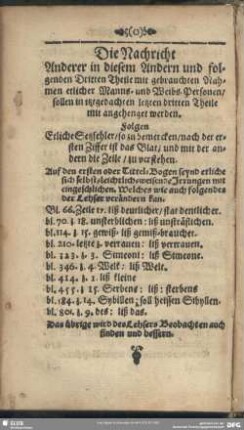 (o)
Die Nachricht
Anderer in diesem Andern und fol-
genden Dritten Theile mit gebrauchten Nah-
men etlicher Manns- und Weibs-Personen/
sollen in itzgedachten letzten dritten Theile
mit angehenget werden.
Folgen
Etliche Setzfehler/ so zu bemercken/ nach der er-
sten Ziffer ist das Blat/ und mit der an-
dern die Zeile/ zu verstehen.
Auf den ersten oder Tittel-Bogen seynd etliche
sich selbst/ leichtlich weisende Irrungen mit
eingeschlichen. Welches wie auch folgendes
der Lehser verändern kan.
Bl. 66. Zeile 11. liß deutlicher/ stat demtlicher.
bl. 70. z. 18. unsterblichen: liß unsträflichen.
bl. 114. z. 15. gewiß- liß gemiß-braucher.
bl. 210. letzte z. verrauen: liß vertrauen.
bl. 323. z. 3. Simeoni: liß Simeons.
bl. 346. z. 4. Welk: liß Welt.
bl. 414. z. 1. liß kleine
bl. 455. z. 15. Serbens: liß: sterbens
bl. 584. z. 14. Sybillen; soll heissen Sibyllen.
bl. 801. z. 9. des: liß das.
Das übrige wird des Lehsers Beobachten auch
finden und bessern.